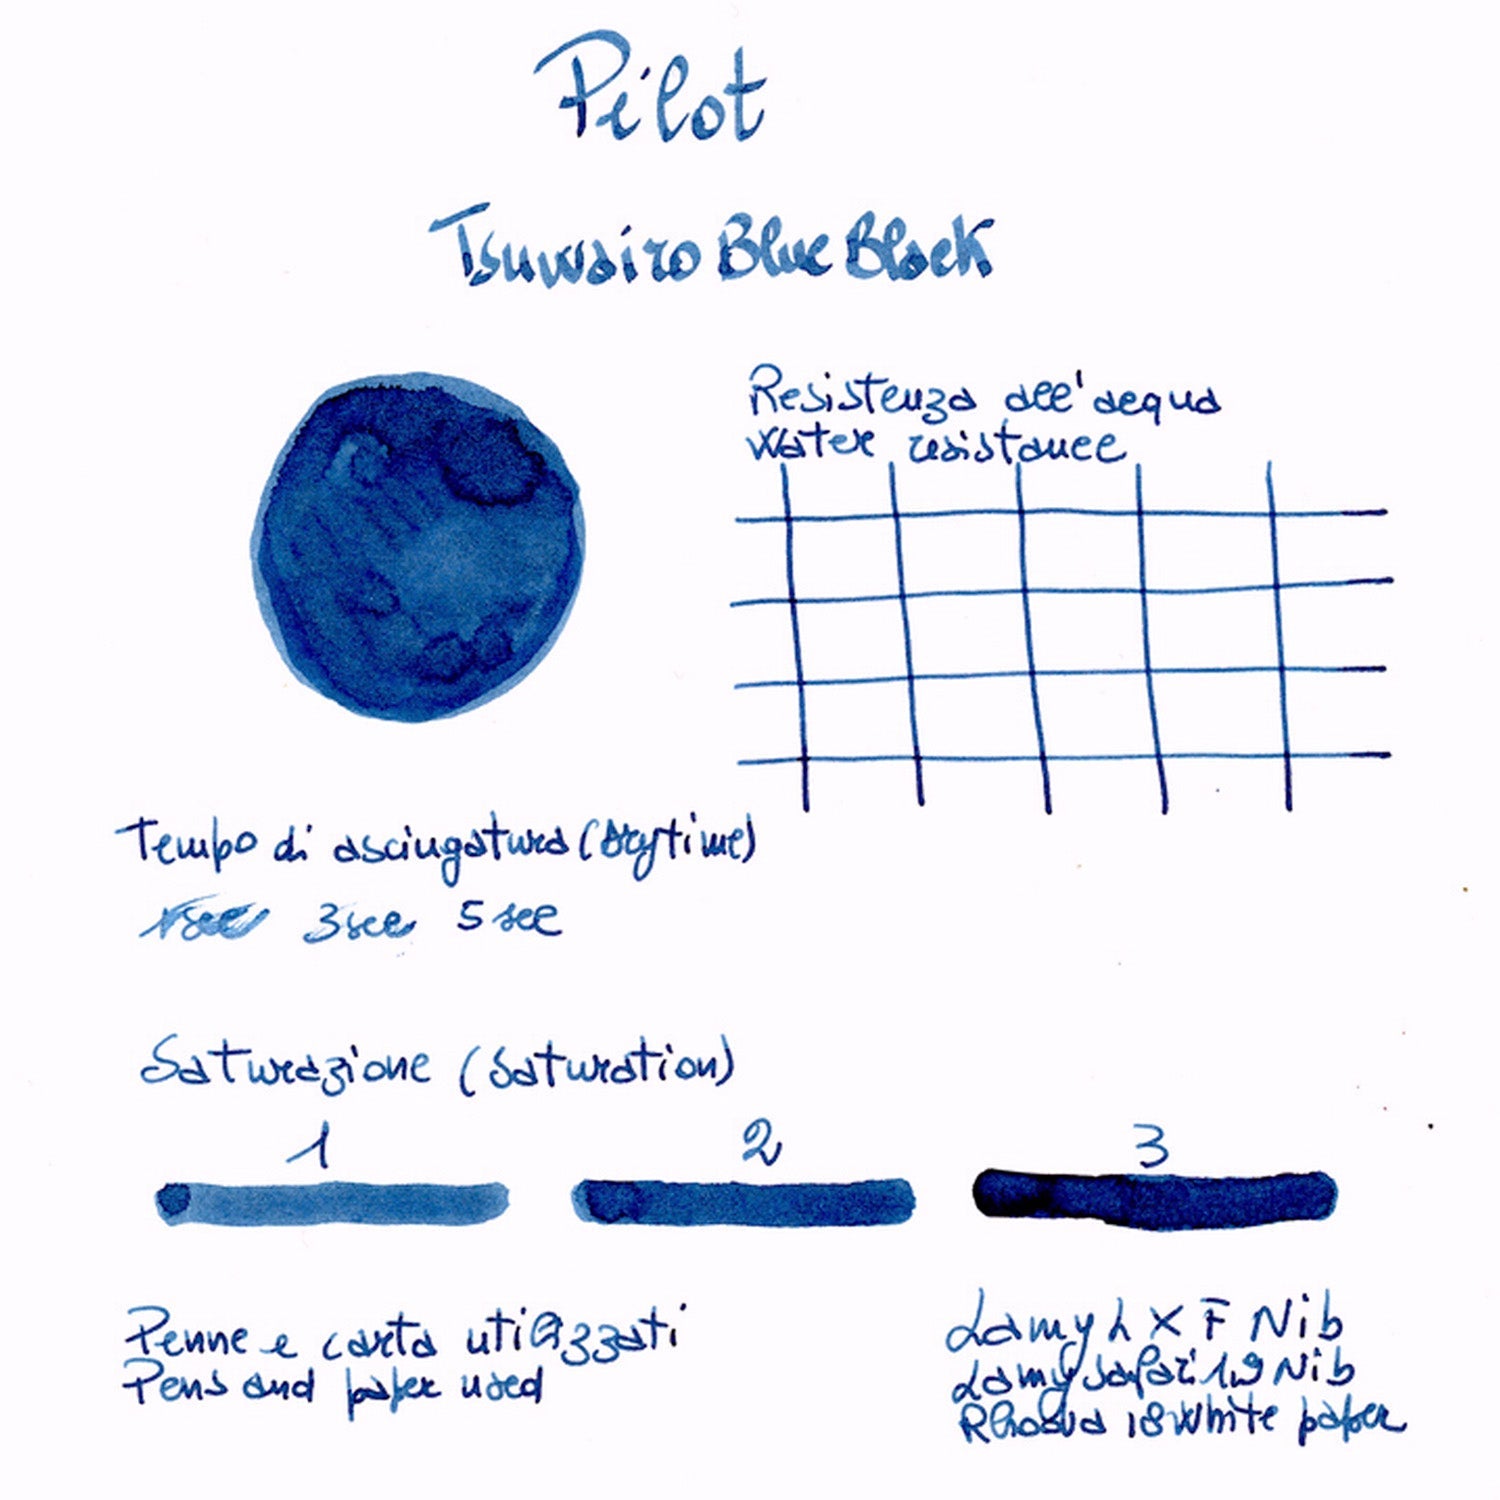 Pilot
Tsuwairo Blue Black
Resistenza all'acqua
Water resistance
Tempo di asciugatura (Drytime)
1sec 3sec 5sec
Saturazione (Saturation)
1 2 3
Penne e carta utilizzati
Pens and paper used
Lamy LX F Nib
Lamy Safari 1,9 Nib
Rhodia 18 White paper